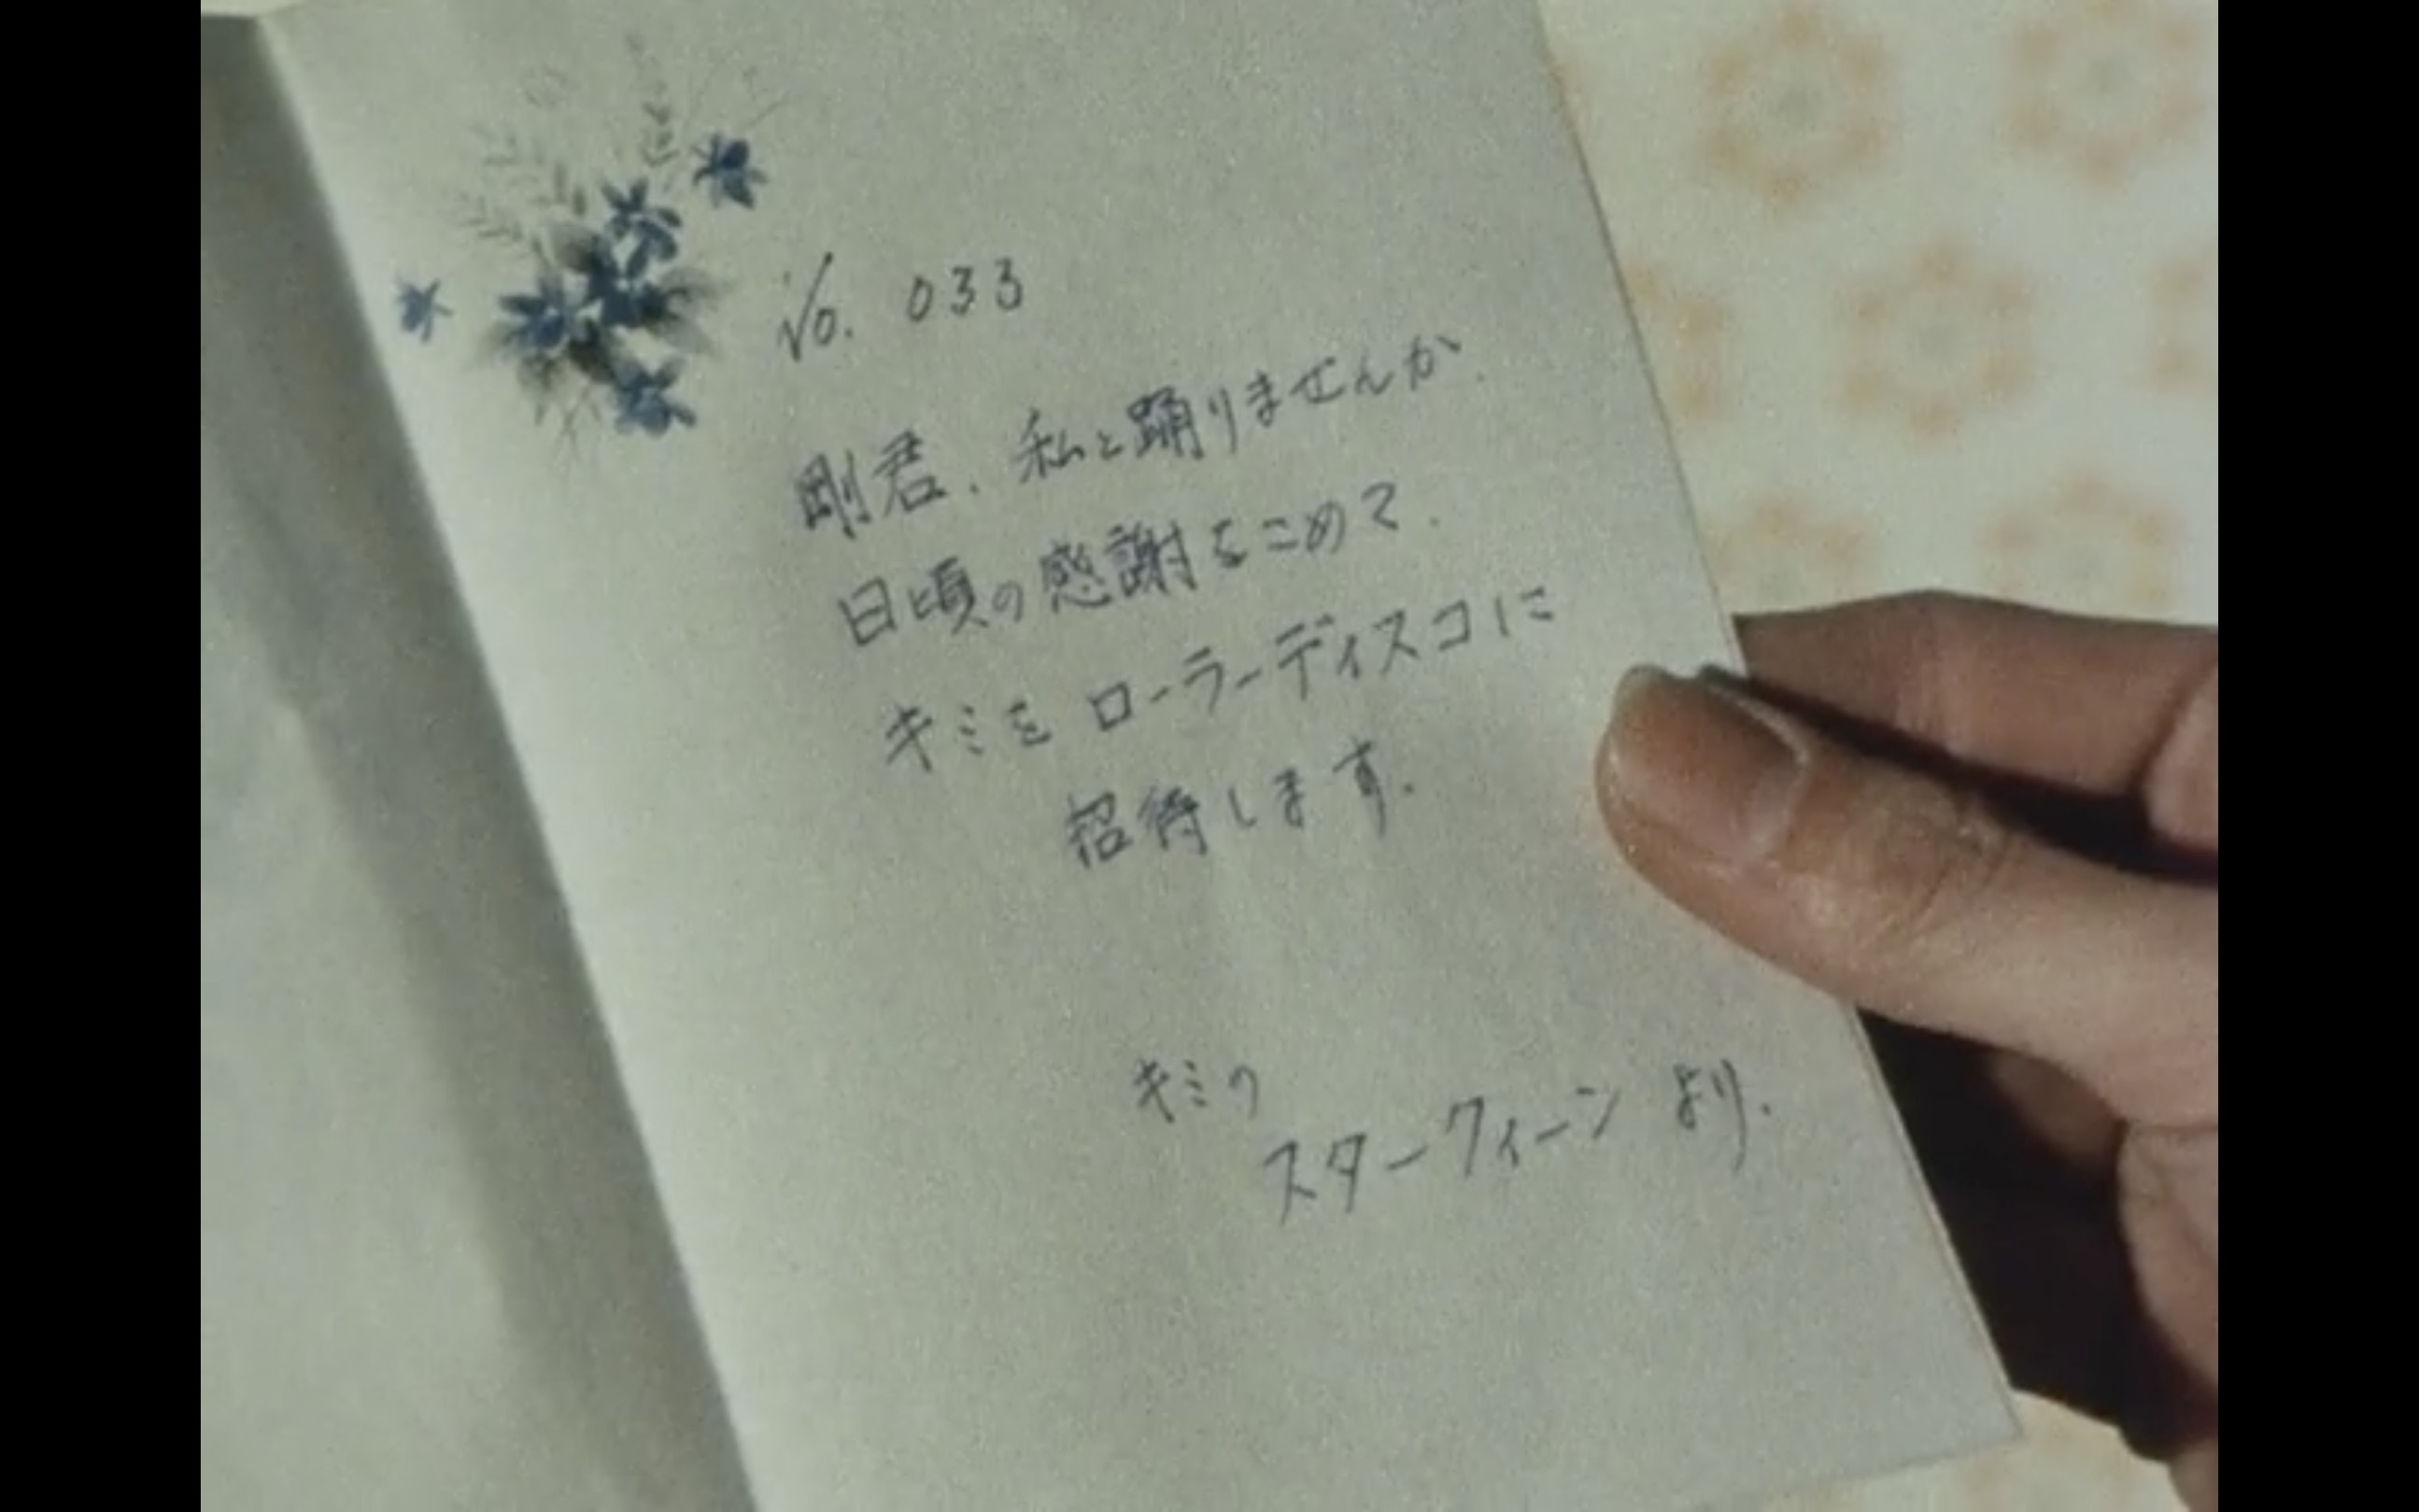 No. 033
剛君、私と踊りませんか.
日頃の感謝をこめて.
キミを ローラーディスコに
招待します.
キミの
スタークィーン より.